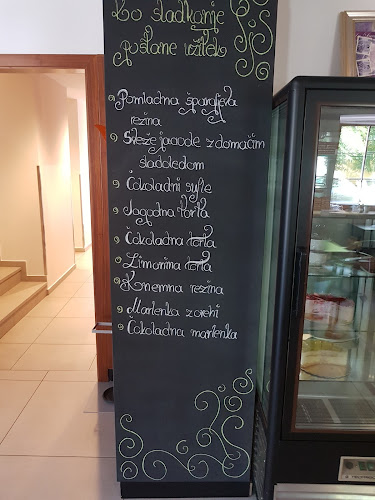 Ko sladkanje
postane užitek
Pomladna šparglјeva
rezina
Sveže jagode z domačim
sladoledom
Čokoladni sufle
Jagodna torta
Čokoladna torta
Limonina torta
Kremna rezina
Marlenka z orehi
Čokoladna marlenka